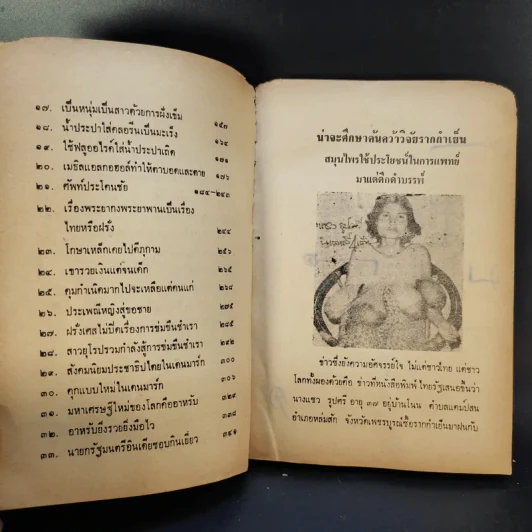 ๑๗. เป็นหนุ่มเป็นสาวด้วยการฝังเข็ม ๑๕๗
๑๘. น้ำประปาใส่คลอรีนเป็นมะเร็ง ๑๖๔
๑๙. ใช้ฟลูออไรค์ใส่น้ำประปาเถิด ๑๗๑
๒๐. เมธิลแอลกอฮอล์ทำให้ตาบอดและตาย ๑๗๖
๒๑. ศัพท์ประโคนชัย ๑๘๔-๒๔๓
๒๒. เรื่องพระยากงพระยาพานเป็นเรื่อง
ไทยหรือฝรั่ง ๒๔๔
๒๓. โกษาเหล็กเคยไปตีภุกาม ๒๕๖
๒๔. เขารวยเงินแต่จนเด็ก ๒๖๕
๒๕. คุมกำเนิดมากไปจะเหลือแต่คนแก่ ๒๖๘
๒๖. ประเพณีหญิงสู่ขอชาย ๒๗๕
๒๗. ฝรั่งเศสไม่ปิดเรื่องการข่มขืนชำเรา
๒๘. สาวยุโรปรวมกำลังสู้การข่มขืนชำเรา
๒๙. สังคมนิยมประชาธิปไตยในเดนมาร์ก ๓๐๐
๓๐. คุกแบบใหม่ในเดนมาร์ก ๓๐๖
๓๑. มหาเศรษฐีใหม่ของโลกคืออาหรับ
๓๒. อาหรับยิ่งรวยยิ่งมือไว
๓๓. นายกรัฐมนตรีอินเดียชอบกินเยี่ยว
น่าจะศึกษาค้นคว้าวิจัยรากกำเย็น
สมุนไพรใช้ประโยชน์ในการแพทย์
มาแต่ดึกดำบรรพ์
ข่าวซึ่งยังความอัศจรรย์ใจ ไม่แต่ชาวไทย แต่ชาว
โลกทั้งผองด้วยคือ ข่าวที่หนังสือพิมพ์ ไทยรัฐเสนอขึ้นว่า
นางแซว รูปศรี อายุ ๓๗ อยู่บ้านโนน ตำบลแคมป์สน
อำเภอหล่มสัก จังหวัดเพชรบูรณ์เชื้อรากกำเย็นมาฝนกับ